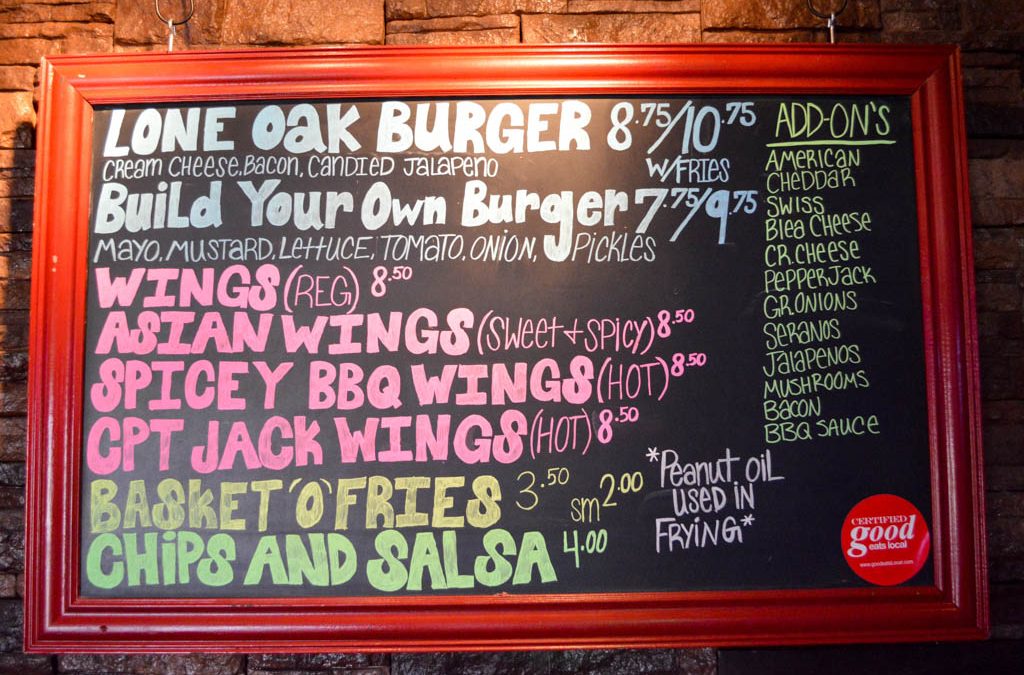 LONE Oak BURGER 8.75/10.75
W/FRIES
CREAM CHEESE, BACON, CANDIED JALAPENO
Build Your Own Burger 7.75/9.75
MAYO, MUSTARD, LETTUCE, TOMATO, ONION, PICKLES
WINGS (REG) 8.50
ASIAN WINGS (SWEET + SPICY) 8.50
SPICEY BBQ WINGS (HOT) 8.50
CPT JACK WINGS (HOT) 8.50
BASKET 'O' FRIES 3.50 sm 2.00
CHIPS AND SALSA 4.00
ADD-ON'S
AMERICAN
CHEDDAR
SWISS
Blea CHEESE
CR. CHEESE
PEPPERJACK
GR. ONIONS
SERANOS
JALAPENOS
MUSHROOMS
BACON
BBQ SAUCE
*Peanut oil
USED IN
FRYING*
CERTIFIED
good
eats local
www.goodeatslocal.com